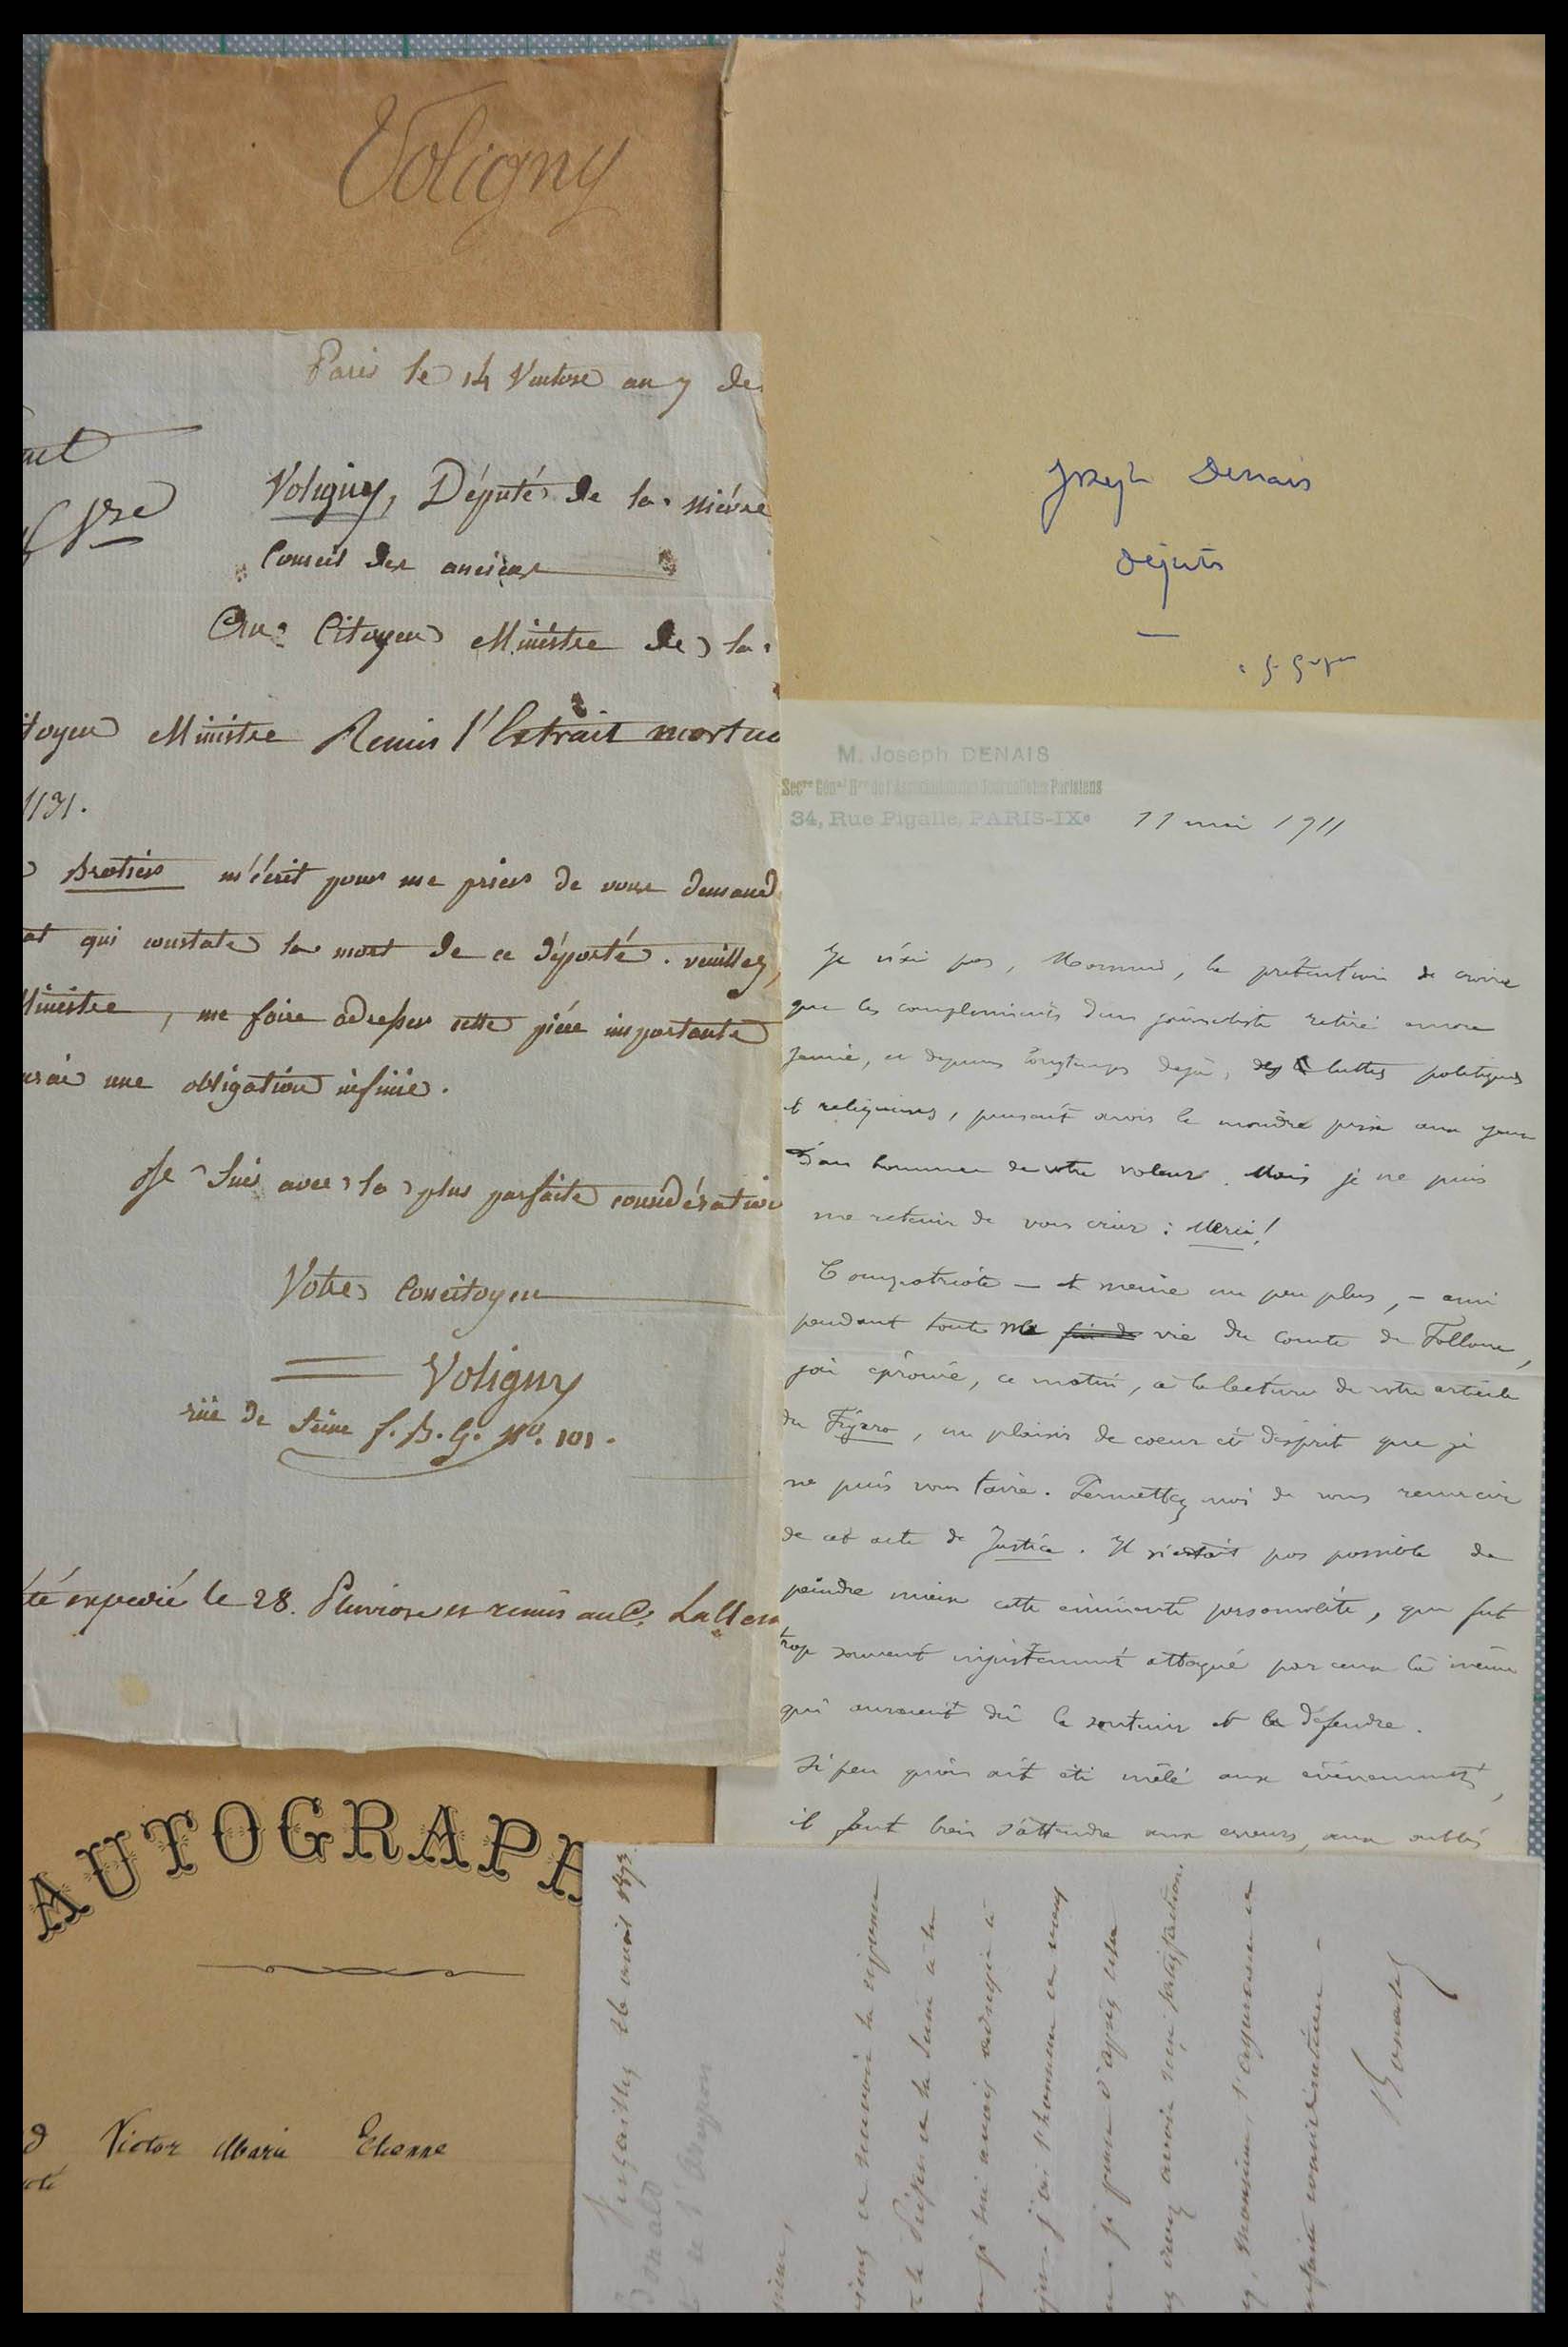 Voligny
Paris le 14 Ventose an 7 de
Voligny, Député de la Niévre
Conseil des anciens
Au Citoyen Ministre de la
itoyen Ministre Remis l'Extrait mortua
1131.
Brotier m'écrit pour me prier de vous demand
at qui constate la mort de ce déporté. veuillez,
Ministre, me faire adresser cette piéce importante
urai une obligation infinie.
Je Suis avec la plus parfaite considération
Votre Concitoyen
Voligny
rüe de Seine f. B. G. No. 101.
été expedié le 28. Pluviose et remis au C.
Joseph Denais
Député
M. Joseph DENAIS
34, Rue Pigalle, PARIS-IXe
11 mai 1911
Je n'ai pas, Monsieur, la prétention de croire
que les compliments d'un journaliste retiré encore
jeune, et depuis longtemps déjà, des luttes politiques
et religieuses, puissent avoir le moindre prix aux yeux
d'un homme de votre valeur. Mais je ne puis
me retenir de vous crier : Merci !
Compatriote — et même un peu plus, — ami
pendant toute vie du Comte de Falloux,
j'ai éprouvé, ce matin, à la lecture de votre article
du Figaro, un plaisir de coeur et d'esprit que je
ne puis vous taire. Permettez moi de vous remercier
de cet acte de Justice. Il n'était pas possible de
peindre mieux cette éminente personnalité, qui fut
trop souvent injustement attaqué par ceux là même
qui auraient dû le soutenir et le défendre.
Si peu qu'on ait été mêlé aux événements,
il faut bien s'attendre aux erreurs, aux oublis
AUTOGRAPH
d Victor Marie Etienne
Versailles 26 avril 1873.
Bonald
de l'Aveyron
sieur,
de recevoir la réponse
la suite à la
avais adressée à
j'ai l'honneur de vous
je pense d'après cela
avoir reçu satisfaction.
, Monsieur, l'assurance de
parfaite considération —
Bonald